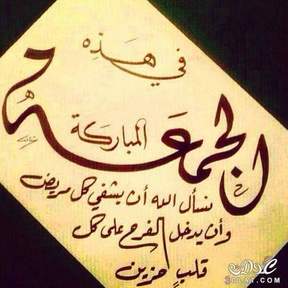 في هَذِهِ
الجمعة
المباركة
نسأل الله أن يشفي كل مريض
وأن يدخل الفرح على كل
قلبٍ حزين